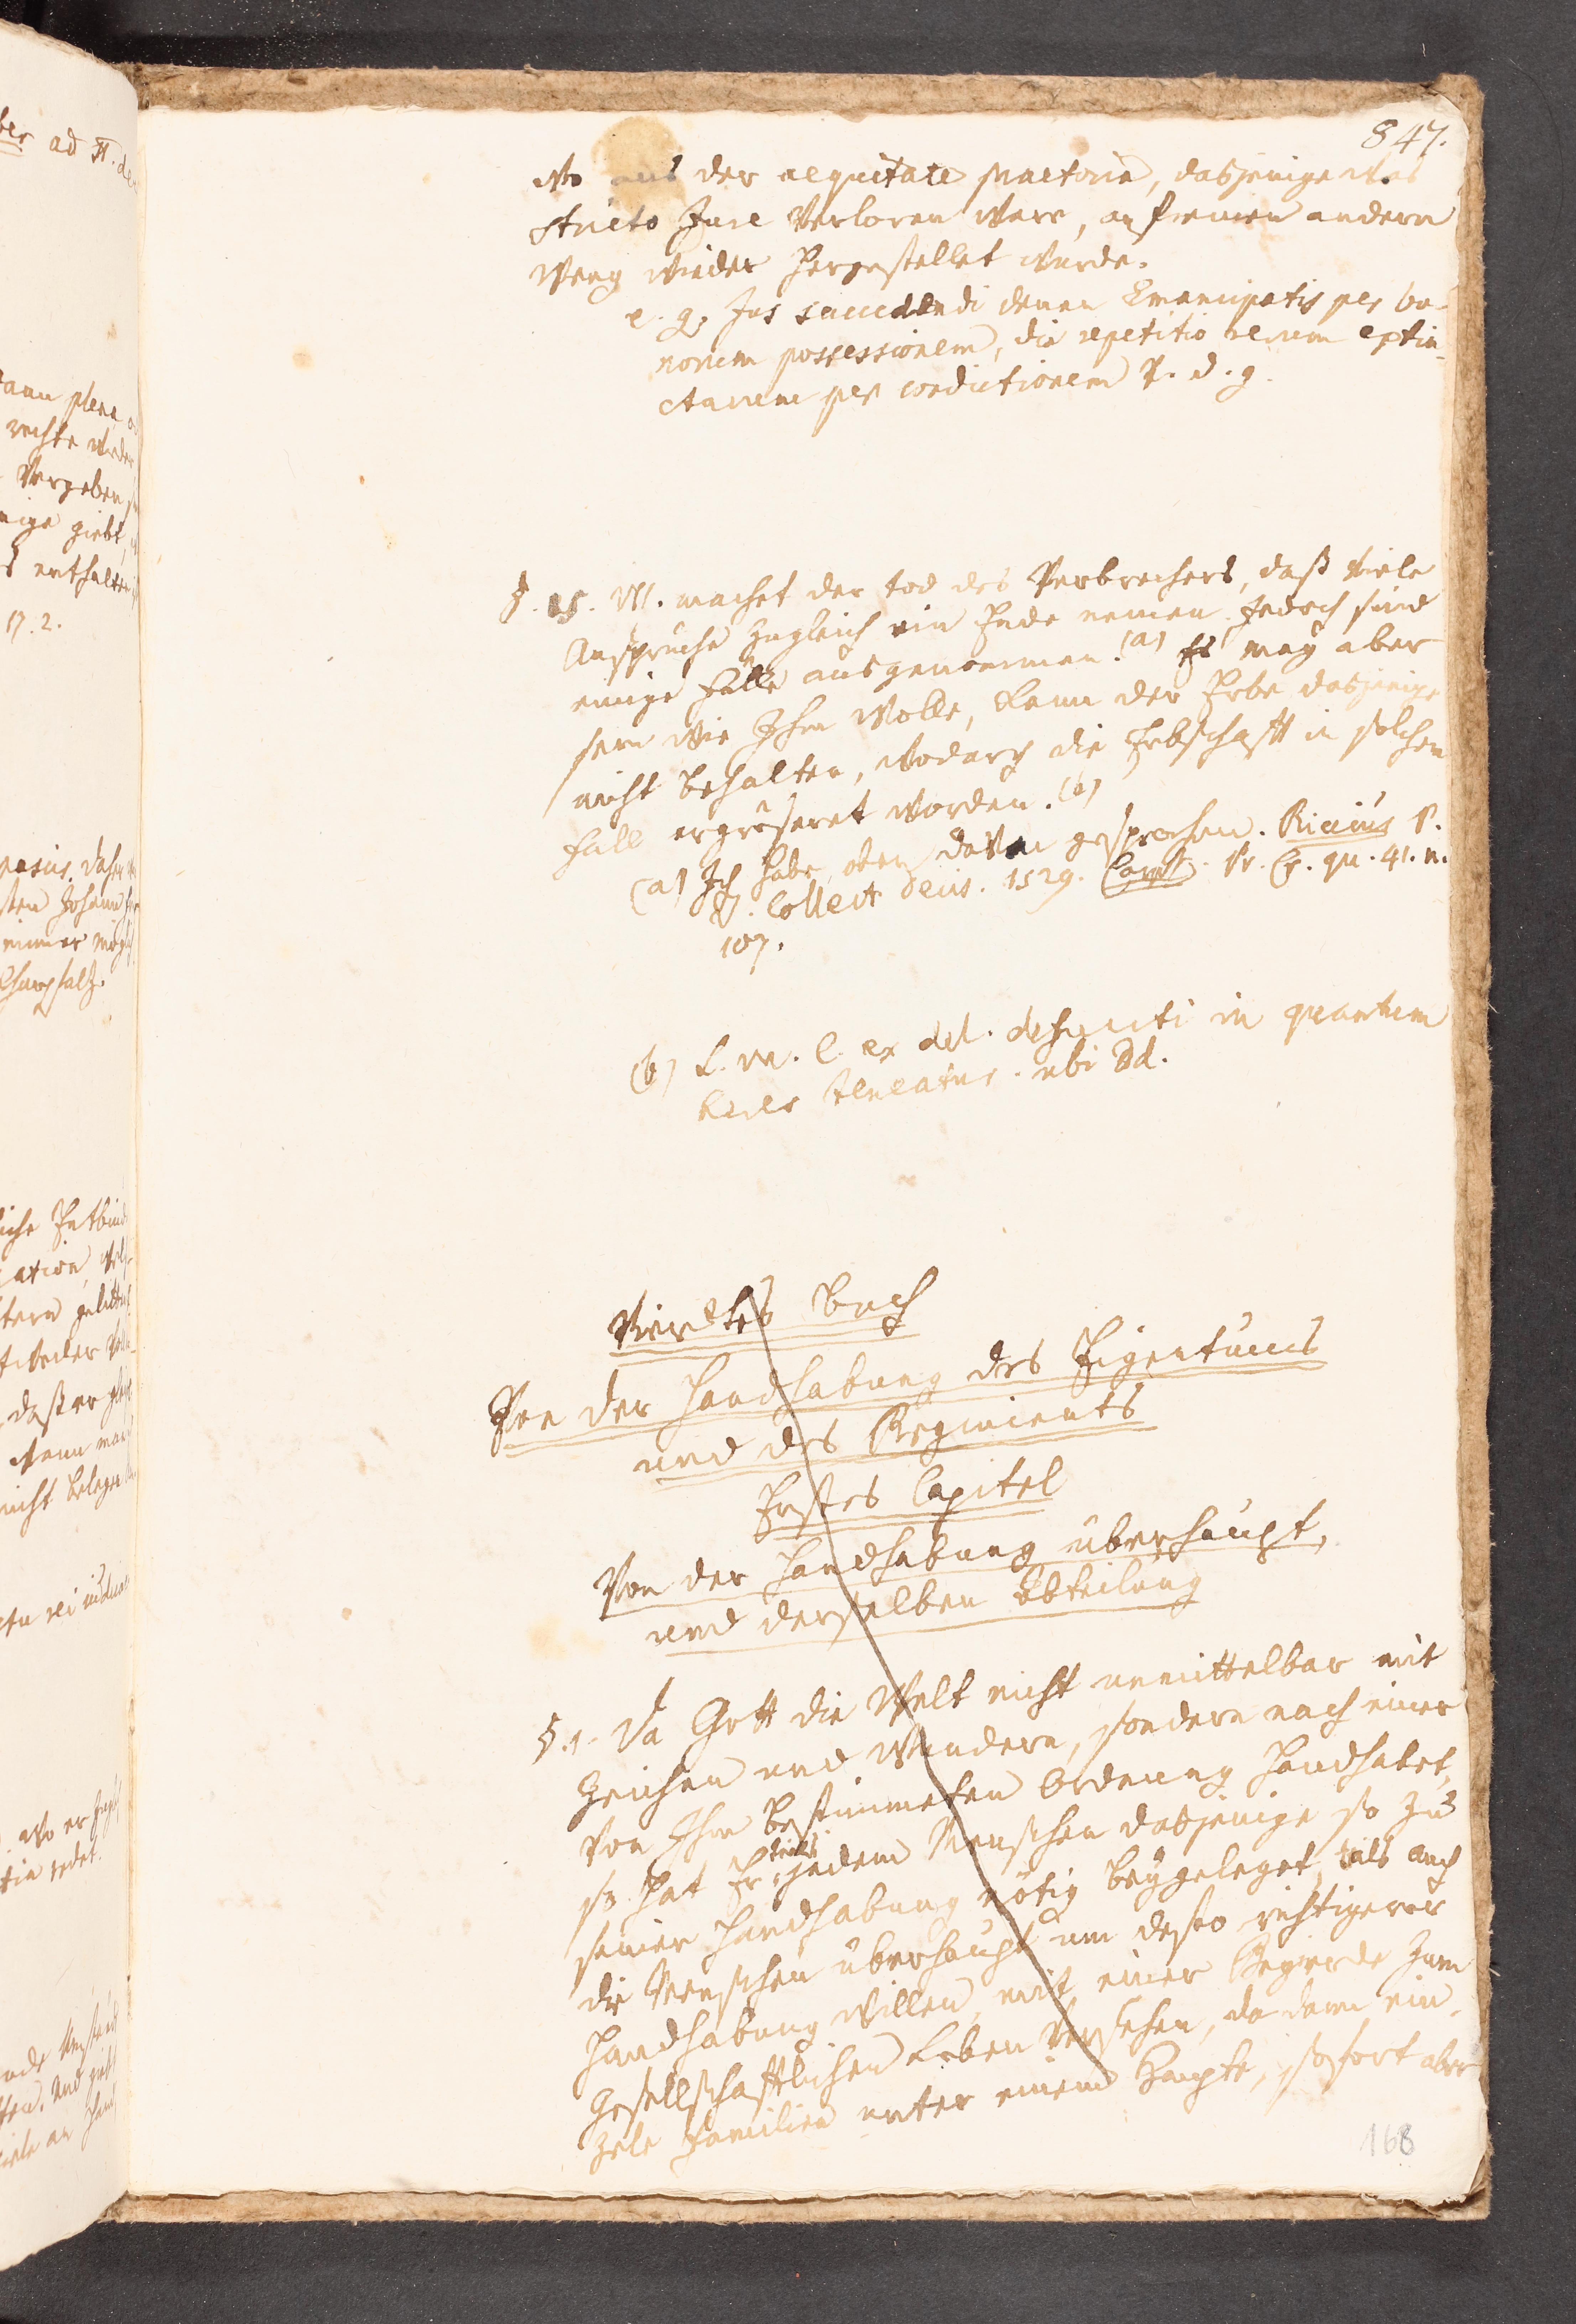 847.
wo aus der aequitate praetoria, dasjenige was
stricto Jure verloren war, auf einen andern
Weeg wieder hergestellet wurde.
e. g. Jus succedendi denen Emancipatis per bo-
norum possessionem, die repetitio rerum extin-
ctarum per condictionem p. d. g.
§. 15. VII. machet der tod des Verbrechers, daß viele
Ansprüche zugleich ein Ende nemen. Jedoch sind
einige Fälle ausgenommen. (a) Es may aber
seyn wie Ihm wolle, kann der Erbe dasjenige
nicht behalten, wodurch die Erbschafft in solchem
Fall ergröseret worden. (b)
(a) Ich habe oben davon gesprochen. Riccius P.
V. Collect decis. 1529. Carpz. Pr. Cr. qu. 41. n.
107.
(b) L. un. C. ex del. defuncti in quantum
heres teneatur. ubi Dd.
Vierdtes Buch
Von der Handhabung des Eigentums
und des Regiments
Erstes Capitel
Von der Handhabung überhaupt,
und derselben Abteilung
§. 1. Da Gott die Welt nicht unmittelbar mit
Zeichen und Wundern, sondern nach einer
von Ihm bestimmeten Ordnung handhabet,
so hat Er teils jedem Menschen dasjenige so zu
seiner Handhabung nötig beygeleget, teils auch
die Menschen überhaupt um desto richtigerer
Handhabung willen, mit einer Begierde zum
Gesellschafftlichen Leben versehen, da dann ein-
zele Familien unter einem Haupte, sofort aber
168